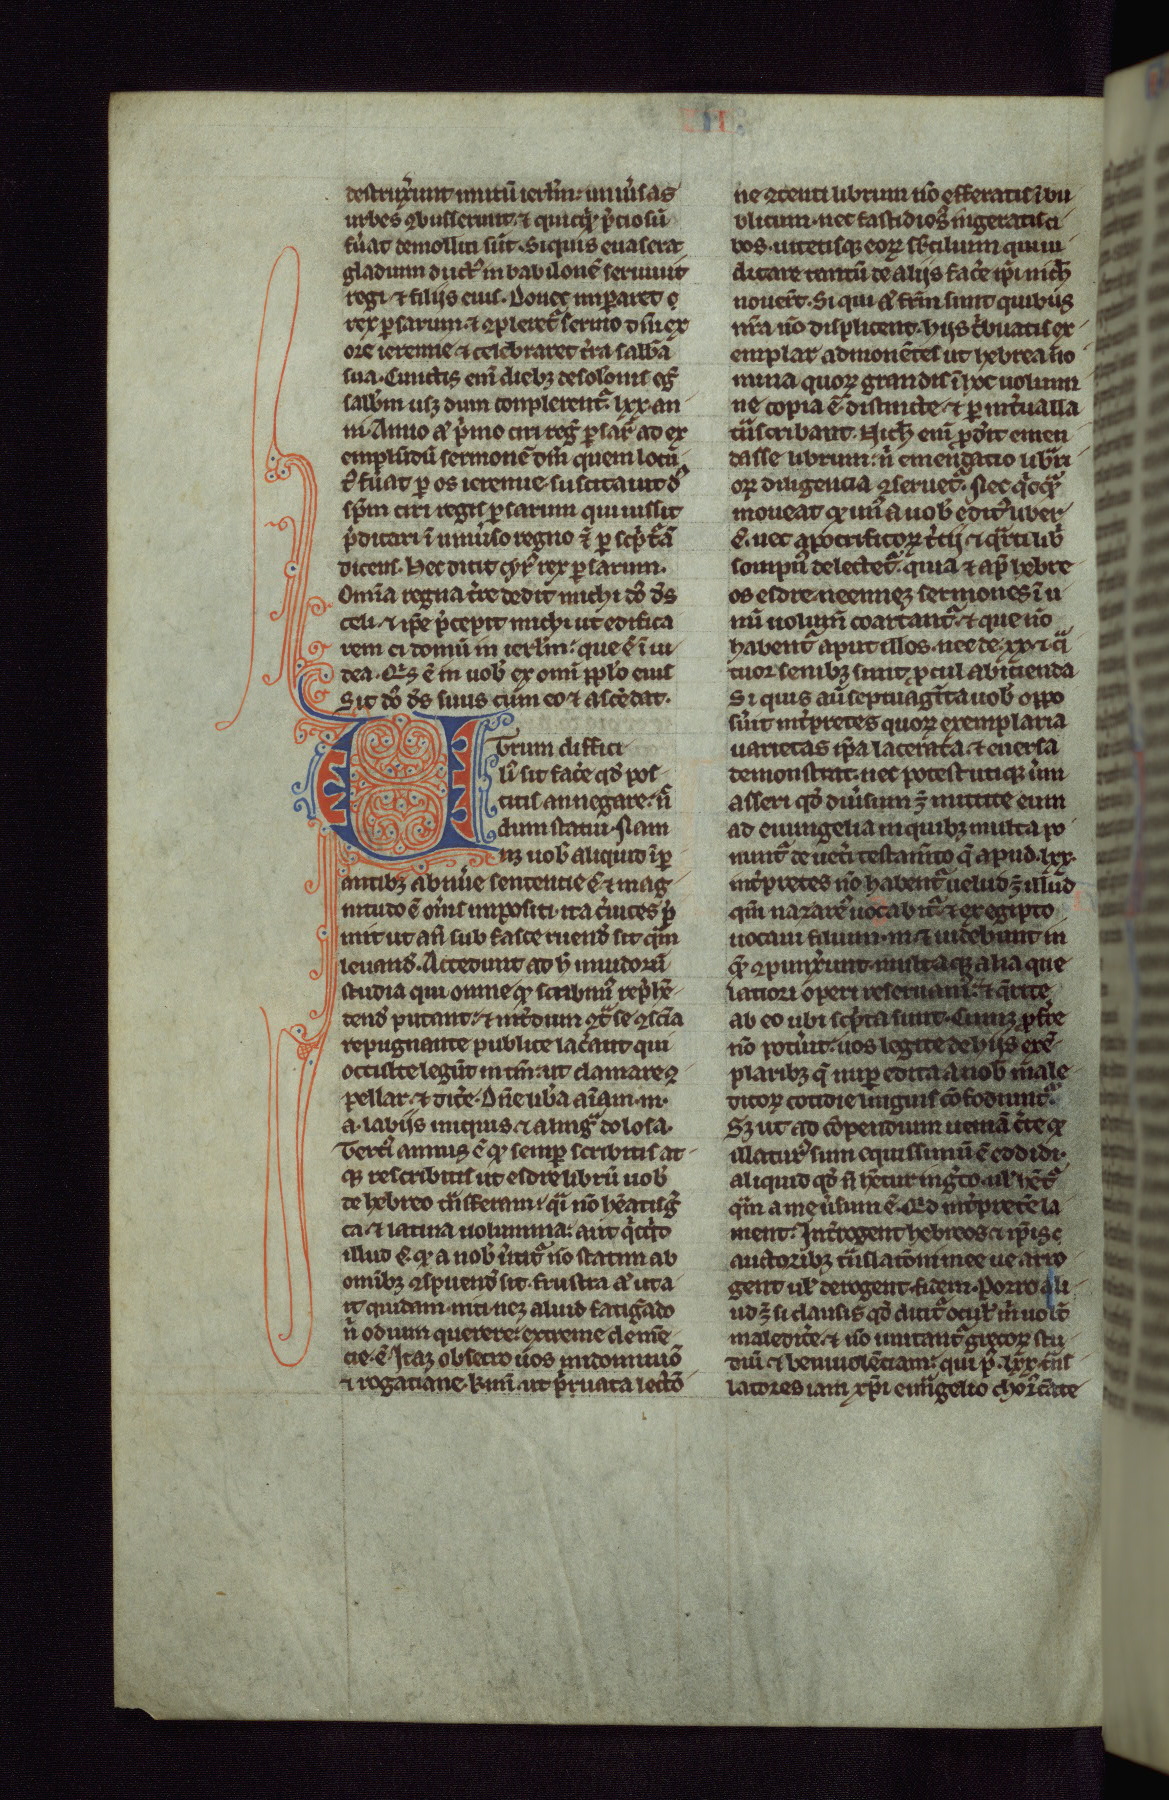 destrux̄unt murū ierl̄m: uniu͛sas
urbes ꝯbusserunt. ⁊ quicq̄ p̄ciosū
fu͛at demoliti sūt. Siquis euaserat
gladium duct᷒ in babilonē seruiuit
regi ⁊ filijs eius. Donec imꝑaret
rex ꝑsarum. ⁊ ꝯpleret᷑ sermo dn̄i ex
ore ieremie ⁊ celebraret t̄ra sabb̄a
sua. Cunctis enī diebꝫ desolonis eḡ
sabb̄m usqꝫ dum conplerent᷑ lxx. an
ni. Anno aū p̄mo ciri reḡ ꝑsaꝝ ad ex
emplendū sermonē dn̄i quem locū
t᷒ fu͛at ꝑ os ieremie. suscitauit dn̄s
sp̄m ciri regis ꝑsarum qui iussit
p̄dicari ī uniu͛so regno ⁊ ꝑ sc̄pturā
dicens. Hec dicit cyr᷒ rex ꝑsarum.
Omīa regna t̄re dedit michi dn̄s ds̄
celi. ⁊ ip̄e p̄cepit michi ut edifica
rem ei domū in ierl̄m: que ē ī iu
dea. Qis ē in uob̄ ex omī pp̄lo eius
Sit dn̄s ds̄ suus cum eo ⁊ ascēdat.
Utrum diffici
li᷒ sit fac̄e qd̄ pos
citis an negare: n̄
dum statui. Nam
neqꝫ uob̄ aliquid īꝑ
antibꝫ abnūe sentencie ē. ⁊ mag
nitudo ē on̄is impositi. ita c̄uices p̄
mit ut an̄ sub fasce ruend̄ sit q̄m
leuand̄. Accedunt ad h̄ inuidorū
studia qui omne qd̄ scribim᷒ rep̄hē
dend̄ putant. ⁊ int̄dum ꝯt᷑ se ꝯsc̄ia
repugnante publice lac̄ant qui
occulte legūt in tm̄: ut clamare ꝯ
pellar. ⁊ dic̄e. Dn̄e lib̄a aīam. m.
a labijs iniquis. ⁊ a lingᷓ dolosa.
Terti᷒ annus ē qd̄ semꝑ scribitis at
qꝫ rescribitis ut esdre librū uob̄
de hebreo t̄nsferam: qᷓi nō hēatis gᷓ
ca. ⁊ latina uolumina: aut q̇cq̇d
illud ē. qd̄ a nob̄ u͛tit᷑ nō statim ab
omībꝫ ꝯspuend̄ sit. Frustra aū ut a
it quidam. niti neqꝫ aliud fatigādo
n̄ odium querere: extreme demē
cie ē. Itaqꝫ obsecro uos mi domniō
⁊ rogatiane. k̄mi. ut p̄uata lectō
ne ꝯtenti librum nō efferatis ī pu
blicum. nec fastidios᷒ ingeratis ci
bos. uitetisqꝫ eoꝝ sc̄cilium qui iu
dicare tantū de alijs fac̄e ip̄i nich̄
nouēt. Si qui aū fr̄m sunt quibus
nr̄a nō displicent. hijs t̄buatis ex
emplar admonētes ut hebrea no
mina quoꝝ grandis ī hoc uolumi
ne copia ē distincte. ⁊ ꝑ int̄ualla
t̄nscribant. Nich̄ enī ꝓdīt emen
dasse librum: n̄ emendatio libr̄i
oꝝ diligencia ꝯseruet᷑. Nec q̇cqᷓ
moueat qd̄ un᷒ a nob̄ edit᷒ liber
ē. nec apocrificoꝝ t̄cij. ⁊ qᷓrti lib̄
sompn̄ delectet᷑. quia ⁊ apd̄ hebre
os esdre. neemieqꝫ sermones ī u
nū uolum̄ coartant᷑. ⁊ que nō
habent᷑ aput illos. nec de. xx. ⁊ qᷓ
tuor senibꝫ sunt. ꝓcul abicienda.
Si quis aū septuaginta uob̄ oppo
su͛it int̄pretes quoꝝ exemplaria
uarietas ip̄a lacerata. ⁊ euersa
demonstrat. nec potest utiqꝫ u͛m
asseri qd̄ diu͛sum ē mittite eum
ad euuangelia in quibꝫ multa po
nunt᷑ de uet̄i testam̄to q̄ apud. lxx.
int̄pretes nō habent᷑ uelud ē illud
qm̄ nazare᷒ uocabit᷑. ⁊ ex egipto
uocaui filium. m. ⁊ uidebunt in
quē ꝯpunx̄unt. multaqꝫ alia que
latiori operi reseruam᷒. ⁊ q̄rite
ab eo ubi sc̄pta sunt. Cumqꝫ ꝓfr̄e
nō potu͛it: uos legite de hijs exē
plaribꝫ q̄ nuꝑ edita a nob̄ male
dicoꝝ cotidie linguis cōfodiunt᷑.
Sꝫ ut ad cōpendium ueniā c̄te qd̄
illatur᷒ sum equissimū ē. edidi
aliquid qd̄ n̄ hētur in gᷓco. ul̄ hēt᷑
q̄m a me u͛sum ē. Qid int̄pretē la
niant: Int̄rogent hebreos ⁊ ip̄is
auctoribꝫ t̄nslatōni mee ue arro
gent ul̄ derogent fidem. Porro ali
ud ē si clausis qd̄ dicit᷑ ocul᷒ m̄ uolt
maledic̄e. ⁊ nō imitant᷑ grecoꝝ stu
diū ⁊ beniuolēciam: qui p᷒. lxx. t̄ns
latores iam xp̄i euuāgelio choruscante